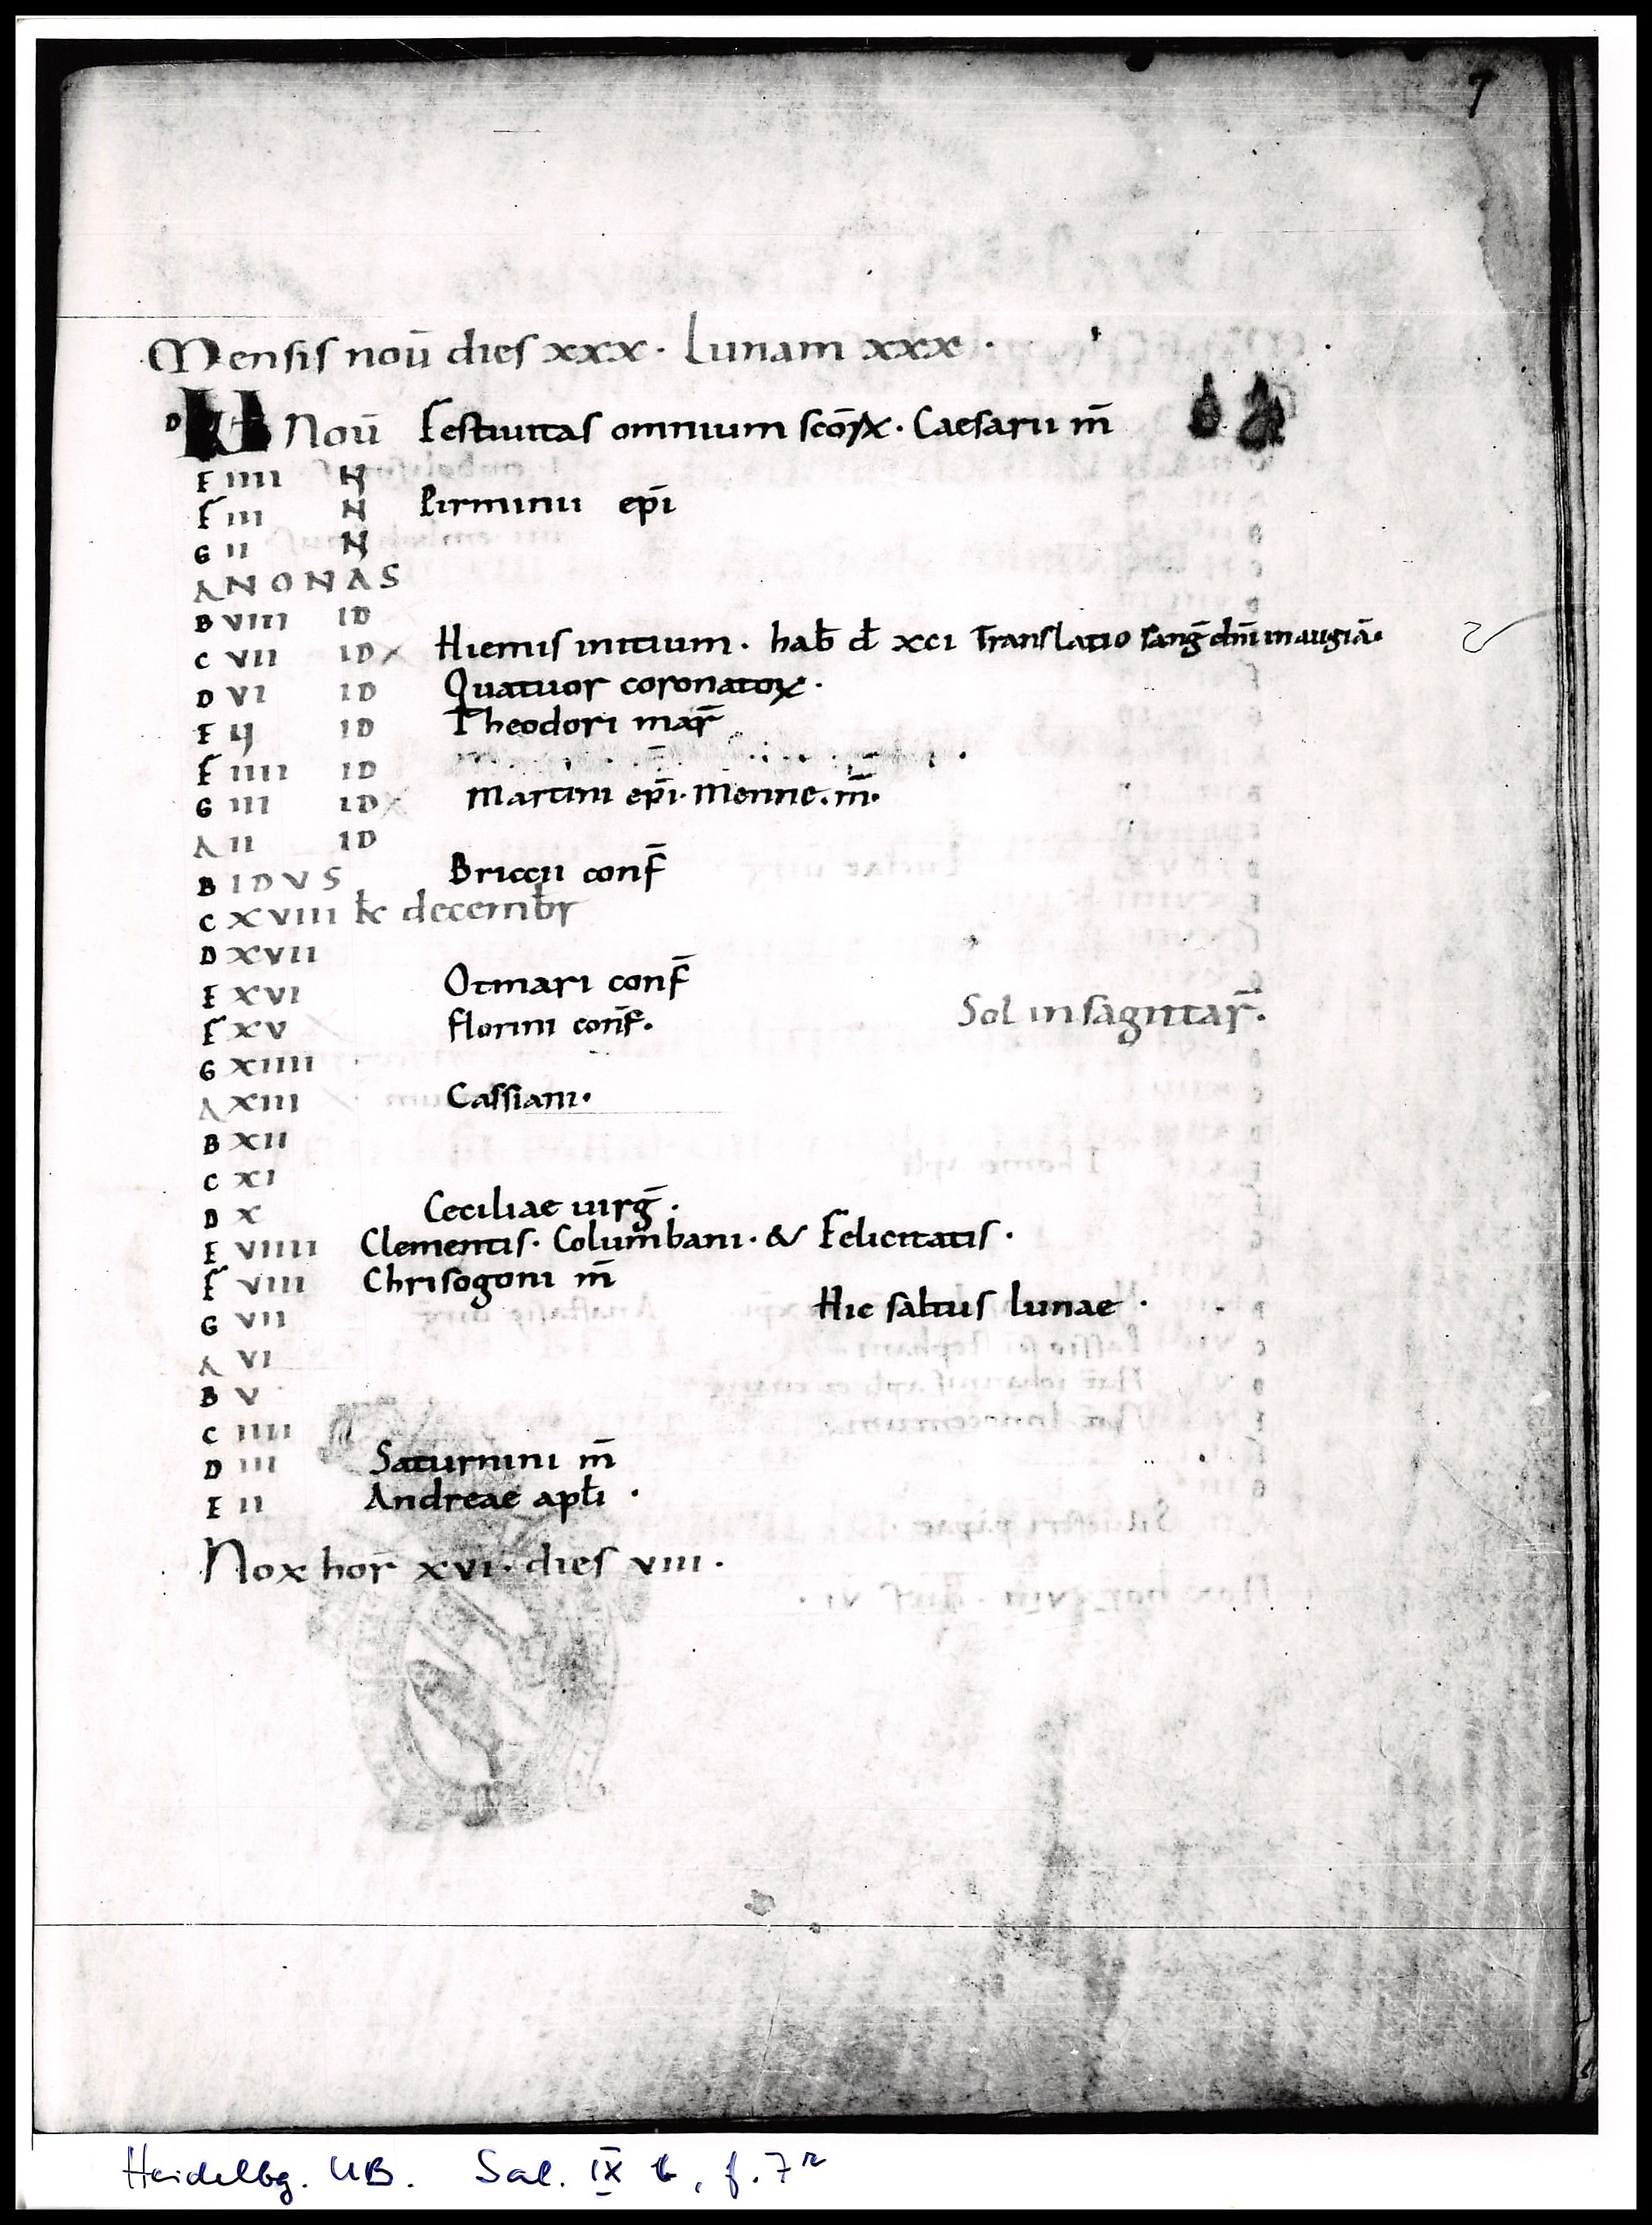 7
Mensis nou̅ dies xxx. Lunam xxx.
D KL Nou̅ Festiuitas omnium sco̅ꝝ. Caesarii m̅
E IIII N
F III N Pirminii ep̅i
G II N
A NONAS
B VIII ID
C VII ID Hiemis initium. hab̅ d̅ xci Translatio sang̅ dn̅i in augia̅.
D VI ID Quatuor coronatoꝝ.
E V ID Theodori mar̅
F IIII ID
G III ID Martini ep̅i. Menne. m̅.
A II ID
B IDVS Briccii conf̅
C XVIII k̅ decemb̅r
D XVII
E XVI Otmari conf̅
F XV florini conf̅. Sol in sagittar̅.
G XIIII
A XIII Cassiani.
B XII
C XI
D X Ceciliae uirg̅.
E VIIII Clementis. Columbani. & Felicitatis.
F VIII Chrisogoni m̅
G VII Hic saltus lunae.
A VI
B V
C IIII
D III Saturnini m̅
E II Andreae apl̅i.
Nox hor̅ xvi. dies viii.
Heidelbg. UB. Sal. IX b, f. 7r